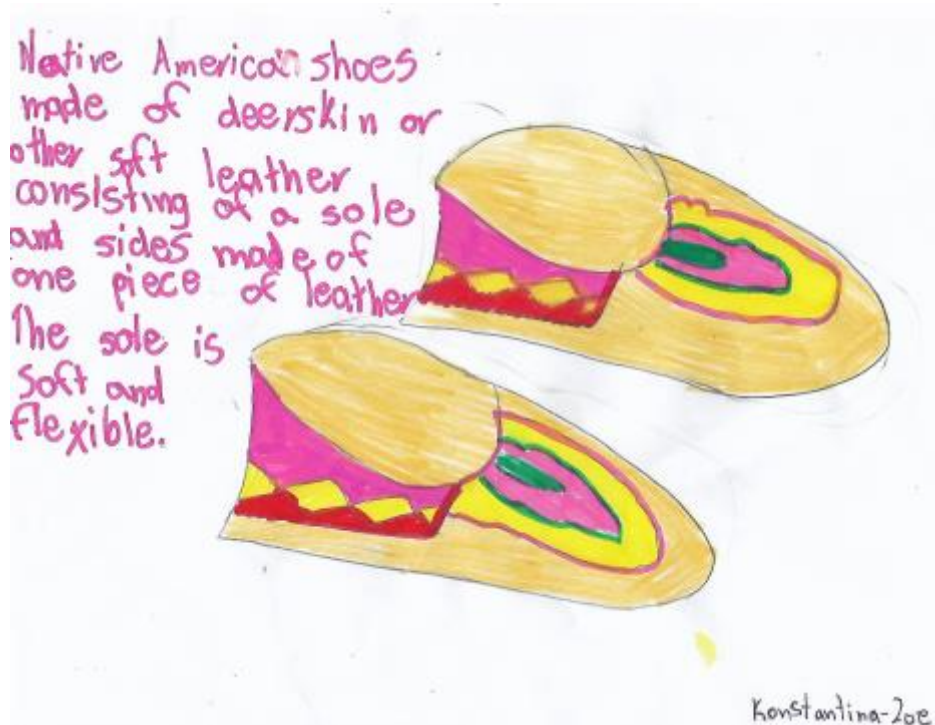 Native American shoes
made of deerskin or
other soft leather
consisting of a sole
and sides made of
one piece of leather
The sole is
soft and
flexible.
Konstantina-Zoe